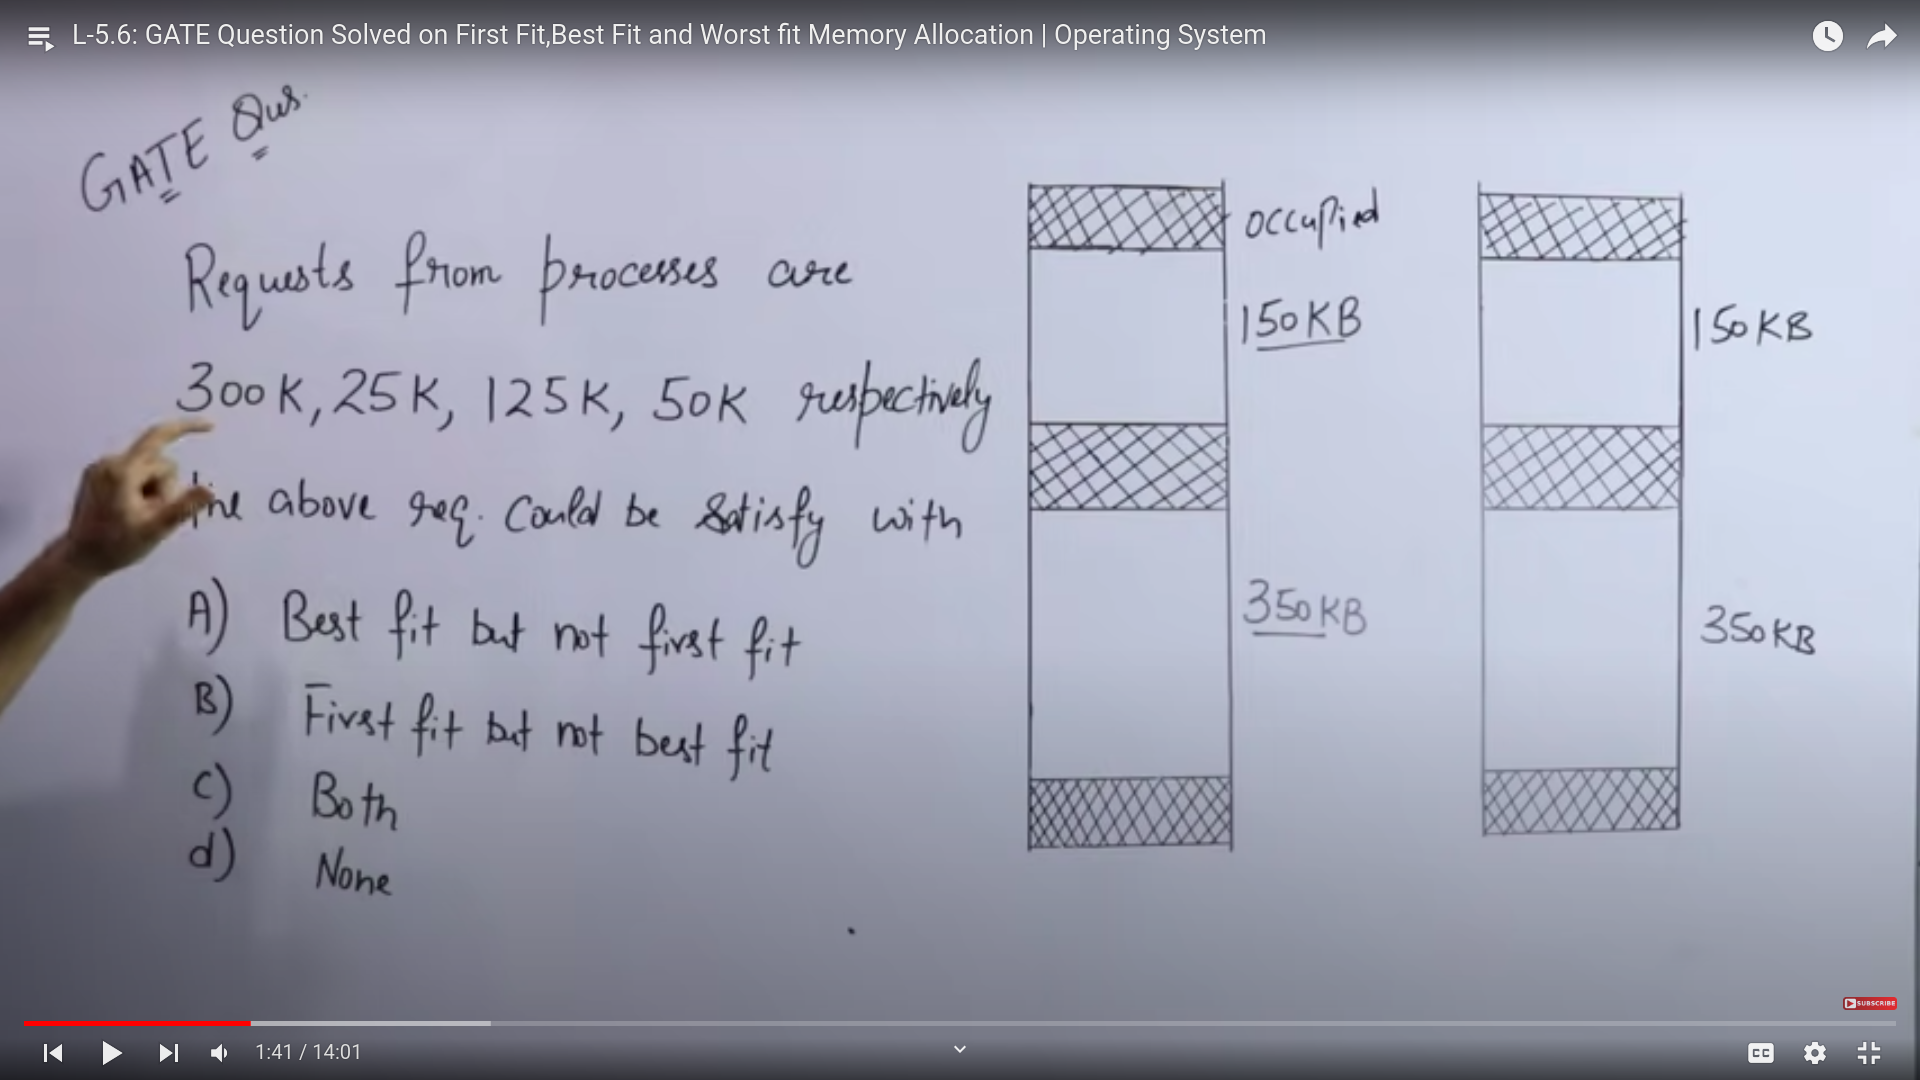 L-5.6: GATE Question Solved on First Fit,Best Fit and Worst fit Memory Allocation | Operating System
GATE Qus.
Requests from processes are
300K, 25K, 125K, 50K respectively
the above req. Could be Satisfy with
A) Best fit but not first fit
B) First fit but not best fit
C) Both
d) None
occupied
150KB
350KB
150KB
350KB
SUBSCRIBE
1:41 / 14:01
CC